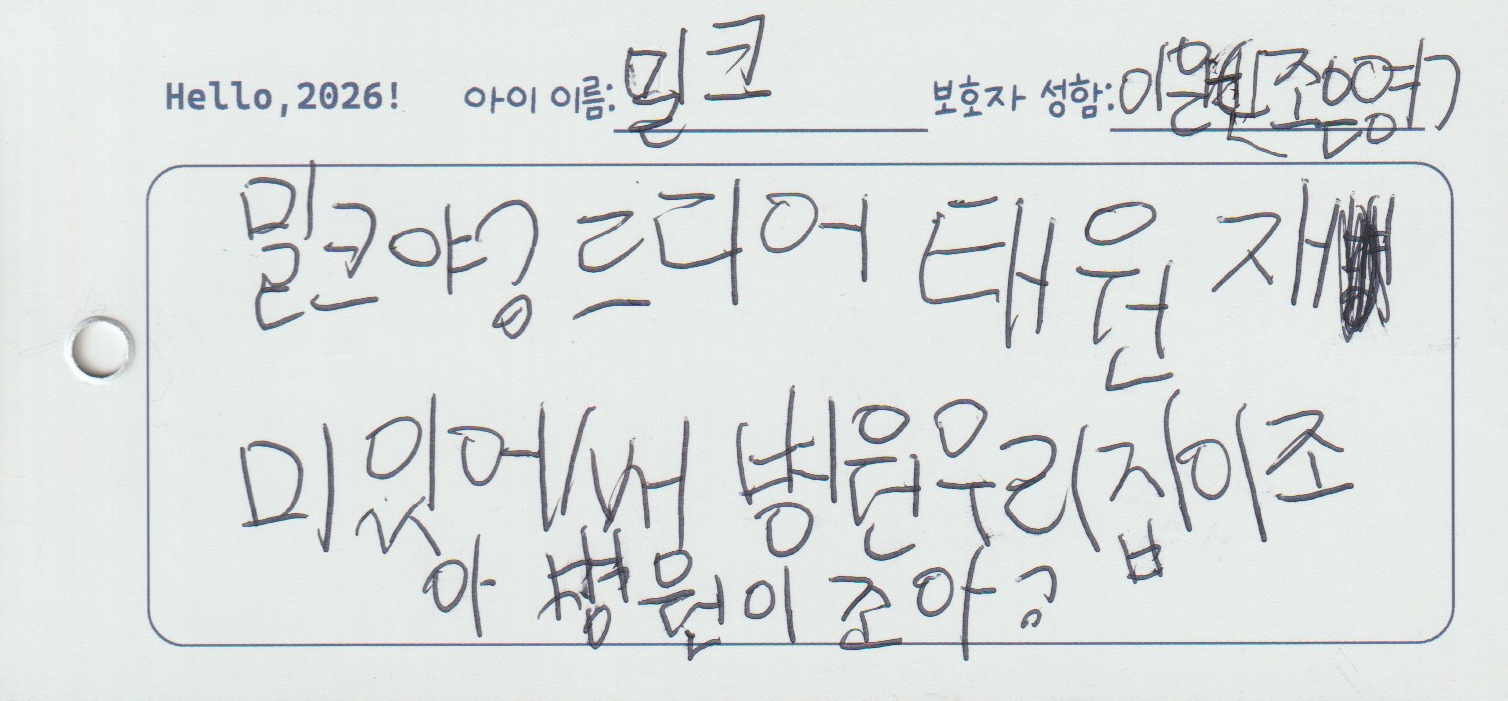 Hello,2026! 아이 이름: 밀크 보호자 성함:
밀크야 드디어 태원 재
미있어써 병원우리집이조
아 병원이 조아?